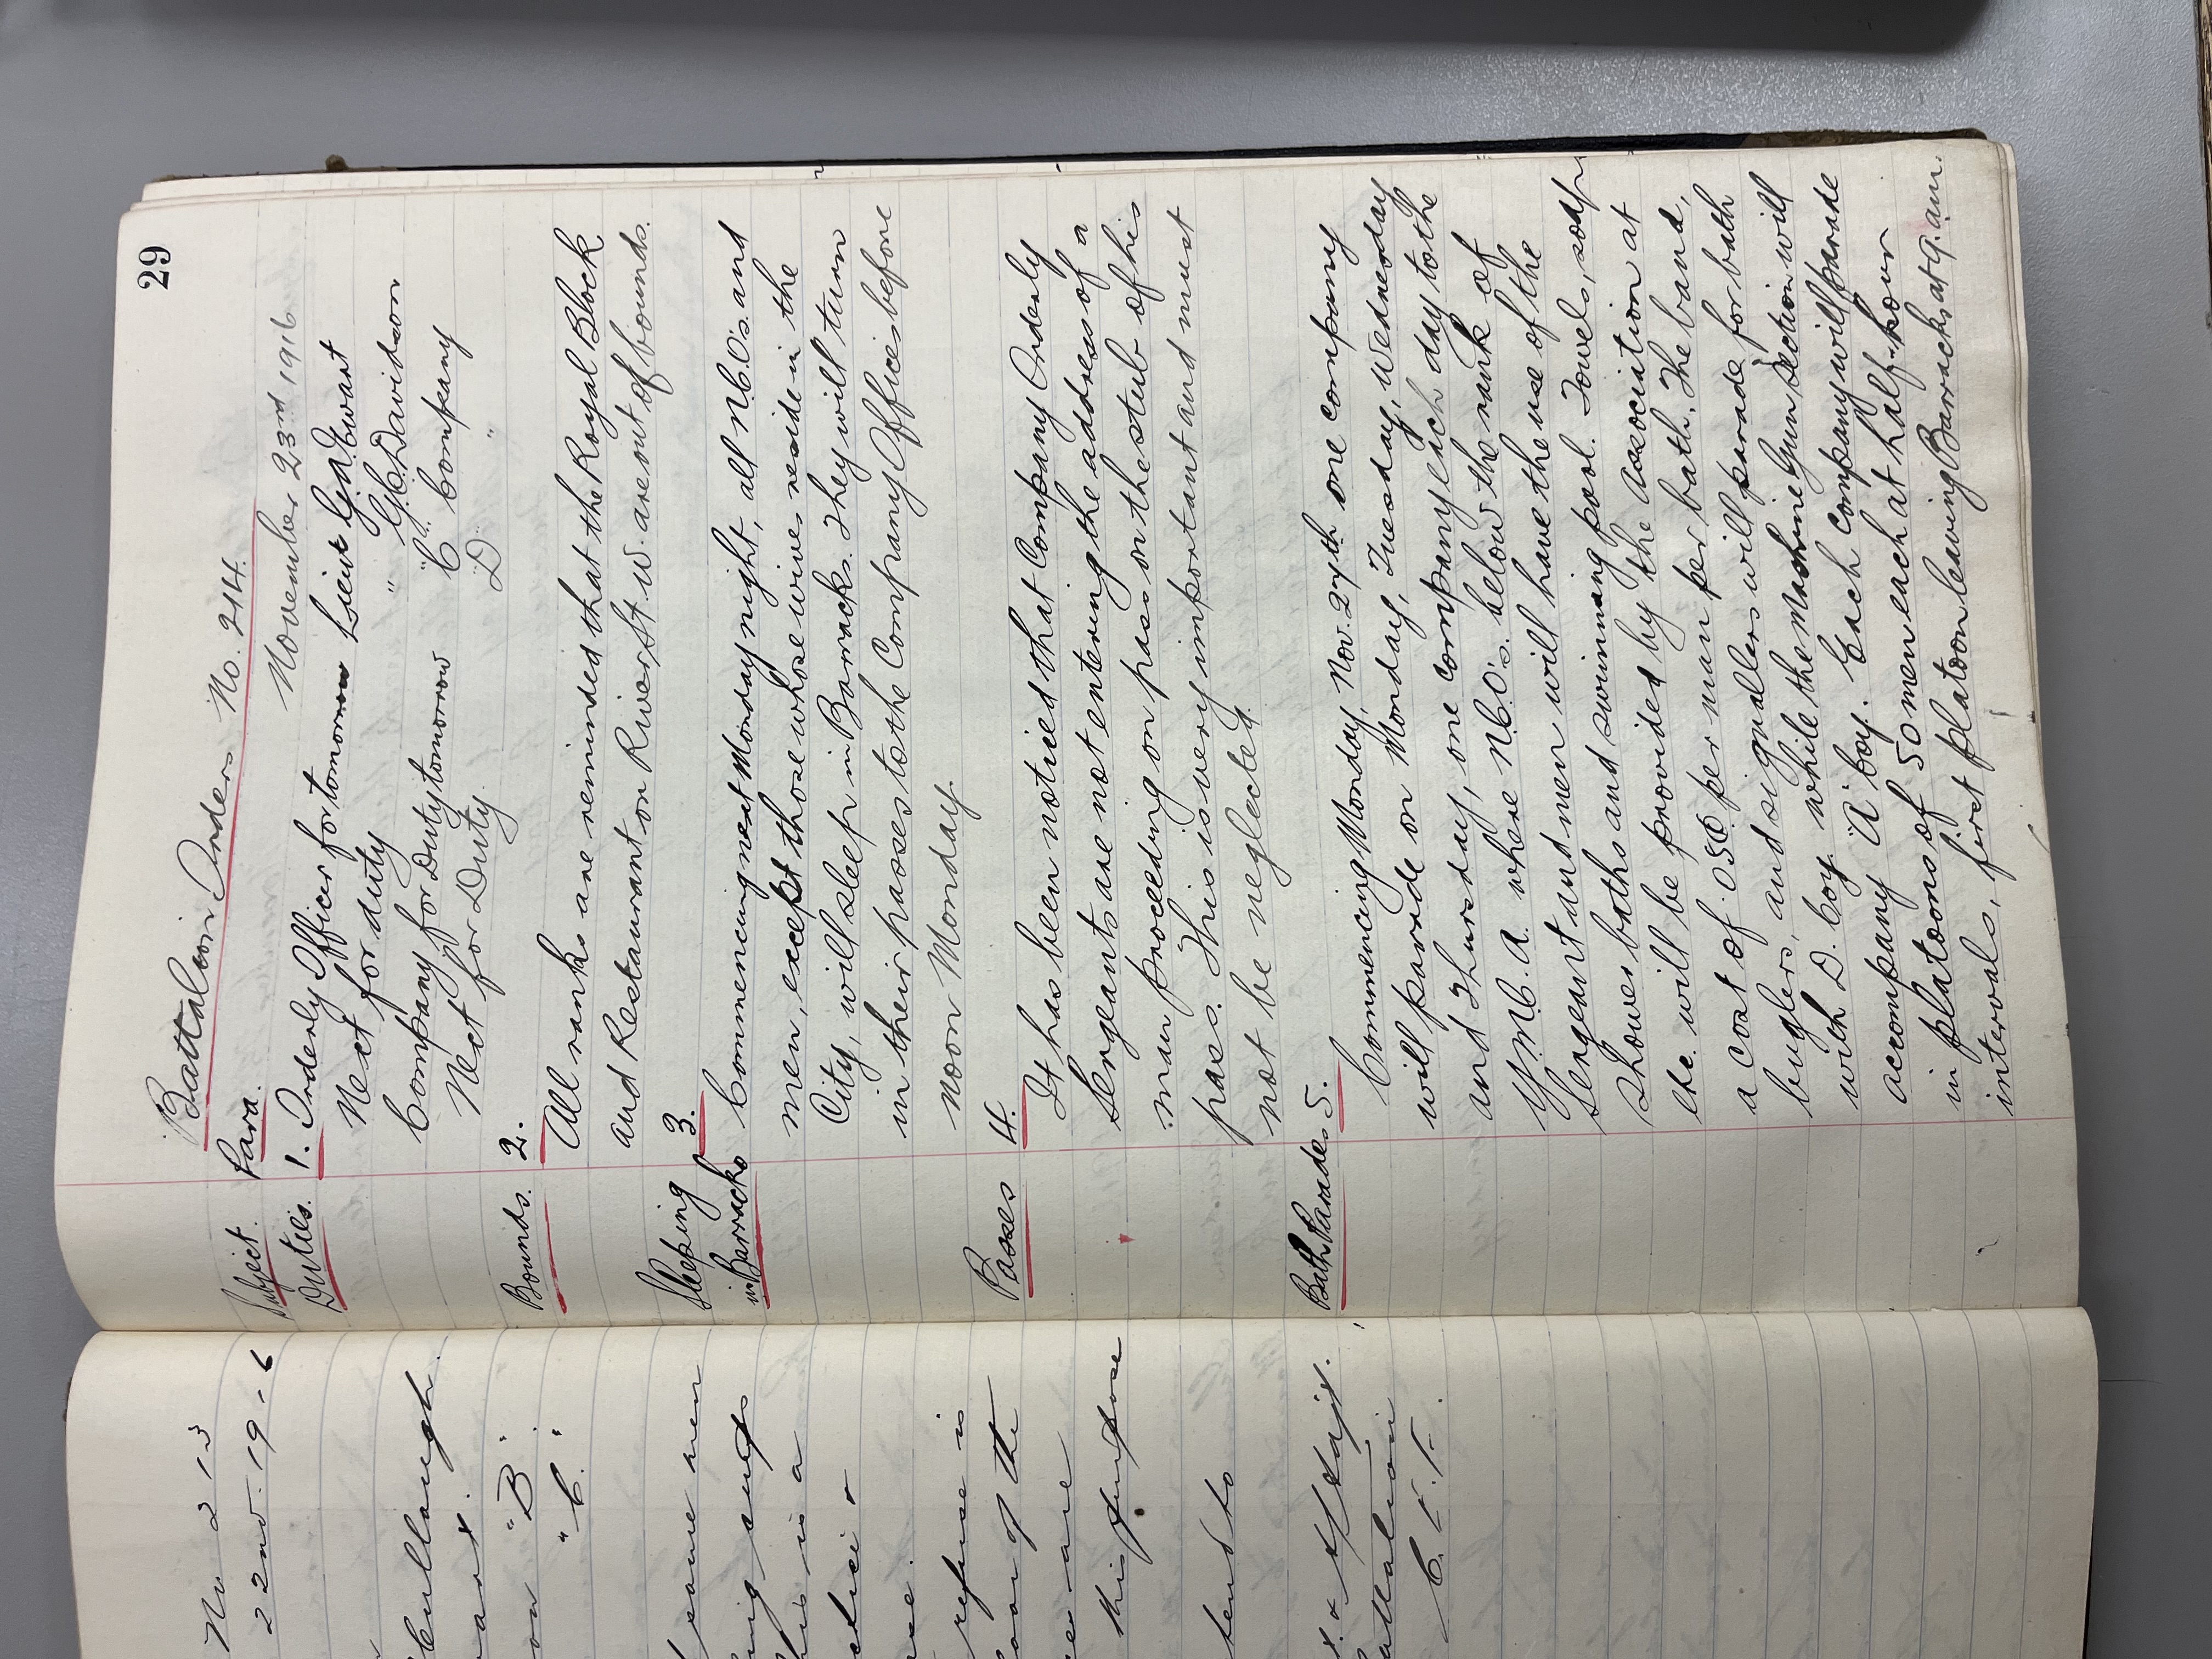 No 213
22nd. 19.6
Cullough.
wart.
ow "B"
"C."
same men
ing cups
his is a
ctice &
refuse is
oor of the
es are
this purpose
tend to
t. & Adjt.
attalion
C.E.F.
29
Battalion Orders No. 214.
November 23rd 1916
Subject. Para.
Duties. 1. Orderly Officer for tomorrow Lieut G.A. Ewart
Next for duty " G.C. Davidson
Company for Duty tomorrow "C" Company
Next for Duty. "D" "
Bounds. 2.
All ranks are reminded that the Royal Block
and Restaurant on River St. W. are out of bounds.
Sleeping 3.
in Barracks
Commencing next Monday night, all N.C.O's. and
men, except those whose wives reside in the
City, will sleep in Barracks. They will turn
in their passes to the Company Offices before
noon Monday.
Passes 4.
It has been noticed that Company Orderly
Sergeants are not entering the address of a
man proceeding on pass on the stub of his
pass. This is very important and must
not be neglected.
Bath Parades 5.
Commencing Monday, Nov. 27th one company
will parade on Monday, Tuesday, Wednesday
and Thursday, one company each day to the
Y.M.C.A. where N.C.O's. below the rank of
Sergeant and men will have the use of the
Shower baths and swimming pool. Towels, soap
etc. will be provided by the Association at
a cost of .05¢ per man per bath. The band,
buglers, and signallers will parade for bath
with D. Coy. while the Machine Gun Section will
accompany "A" Coy. Each Company will parade
in platoons of 50 men each at half-hour
intervals, first platoon leaving Barracks at 9. am.